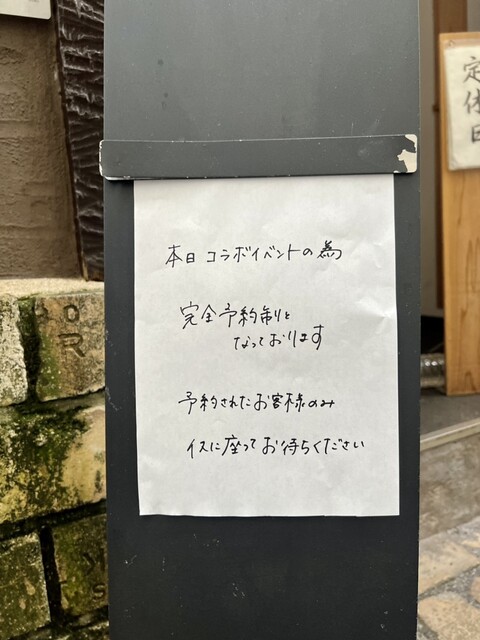 本日 コラボイベントの為
完全予約制と
なっております
予約されたお客様のみ
イスに座ってお待ちください
定休日
OR